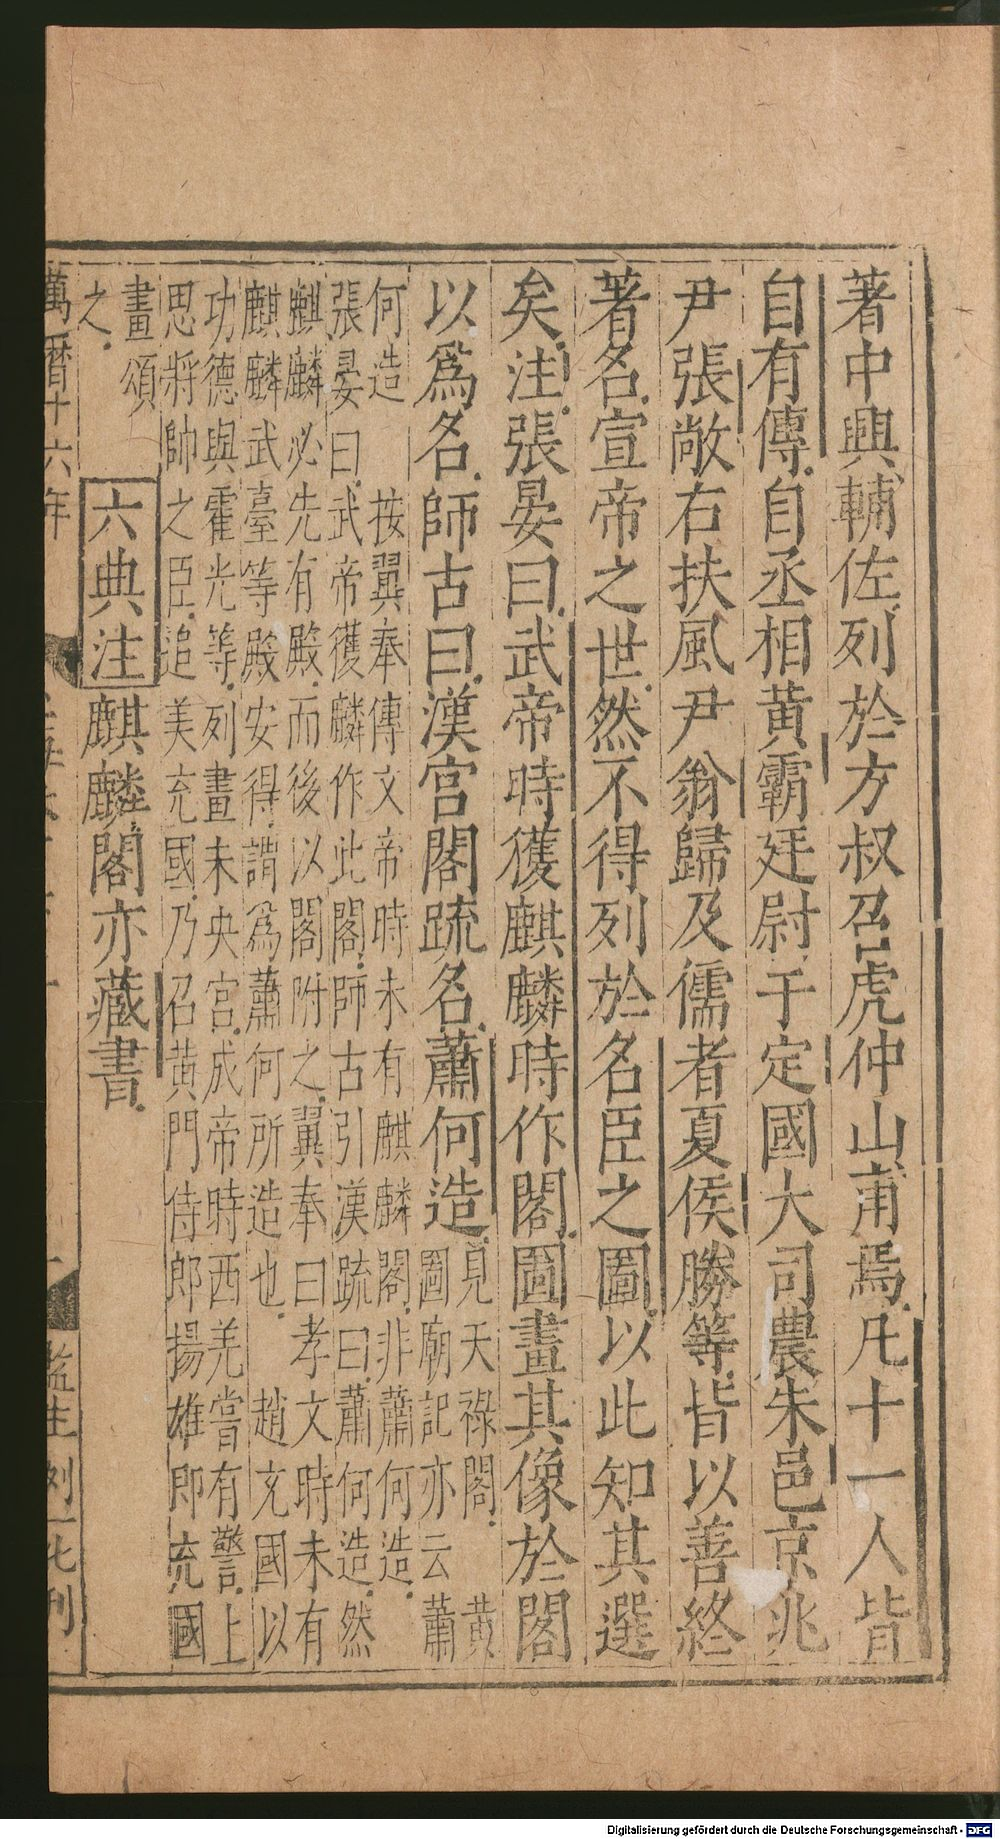 著中興輔佐列於方叔召虎仲山甫焉凡十一人皆
自有傳自丞相黃霸廷尉于定國大司農朱邑京兆
尹張敞右扶風尹翁歸及儒者夏侯勝等皆以善終
著名宣帝之世然不得列於名臣之圖以此知其選
矣注張晏曰武帝時獲麒麟時作閣圖畫其像於閣
以爲名師古曰漢宮閣疏名蕭何造
見天祿閣 黃
圖廟記亦云蕭
何造 按翼奉傳文帝時未有麒麟閣非蕭何造
張晏曰武帝獲麟作此閣師古引漢疏曰蕭何造然
麒麟必先有殿而後以閣附之翼奉曰孝文時未有
麒麟武臺等殿安得謂爲蕭何所造也 趙充國以
功德與霍光等列畫未央宮成帝時西羌嘗有警上
思將帥之臣追美充國乃召黃門侍郎揚雄即充國
畫頌
之
六典注麒麟閣亦藏書
萬曆十六年
監生刘一化刊
Digitalisierung gefördert durch die Deutsche Forschungsgemeinschaft - DFG